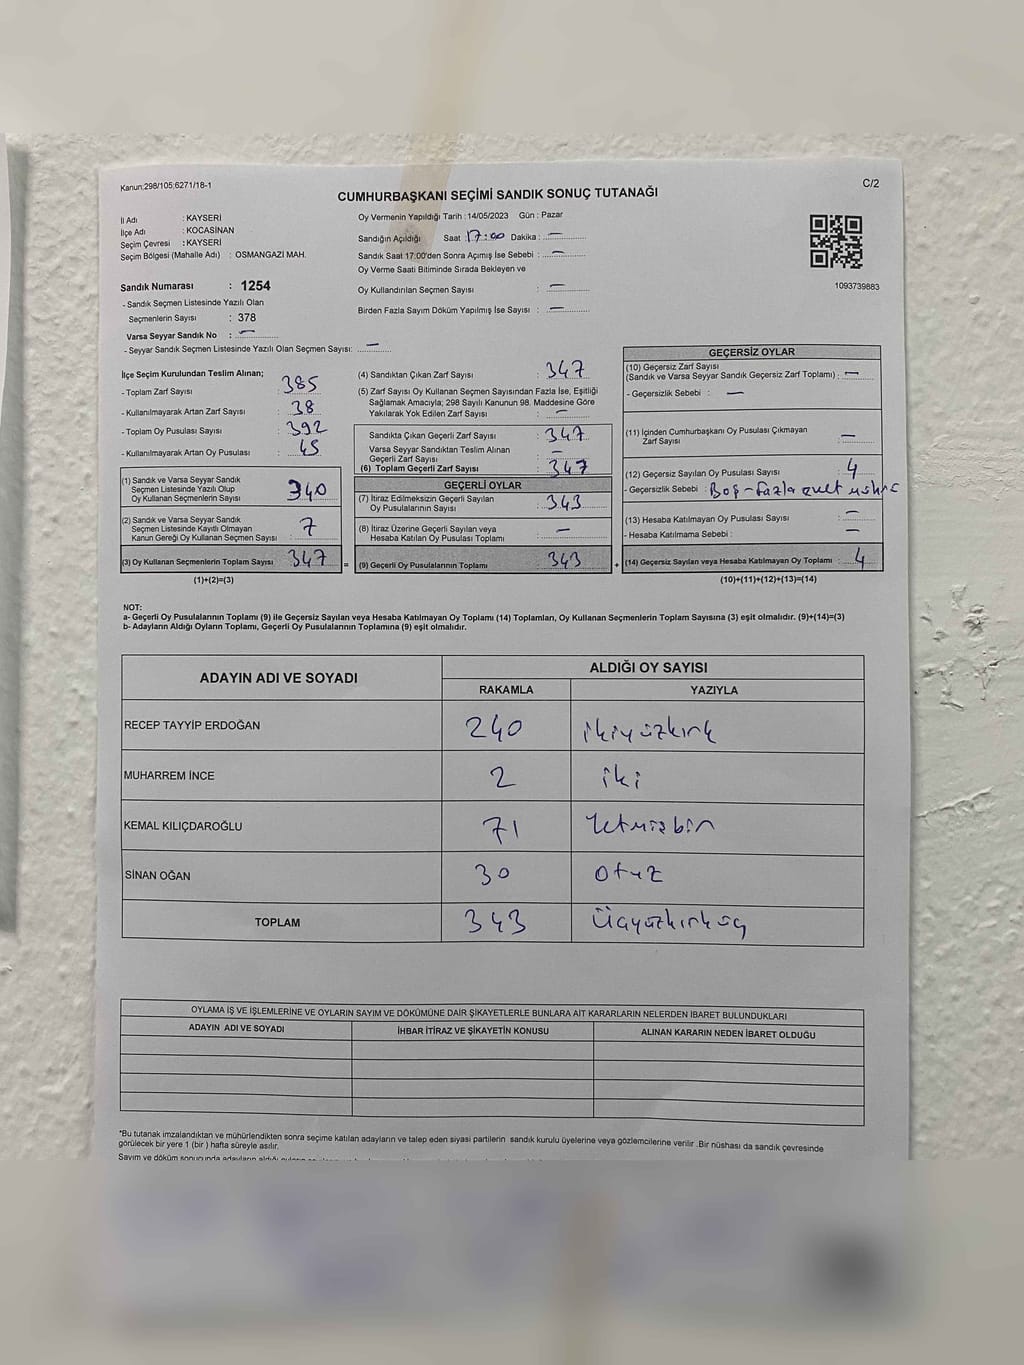 Kanun:298/105;6271/18-1
C/2
CUMHURBAŞKANI SEÇİMİ SANDIK SONUÇ TUTANAĞI
İl Adı : KAYSERİ
İlçe Adı : KOCASİNAN
Seçim Çevresi : KAYSERİ
Seçim Bölgesi (Mahalle Adı) : OSMANGAZİ MAH.
Oy Vermenin Yapıldığı Tarih : 14/05/2023 Gün : Pazar
Sandığın Açıldığı Saat : 17:00 Dakika : —
Sandık Saat 17:00'den Sonra Açımış İse Sebebi : —
Oy Verme Saati Bitiminde Sırada Bekleyen ve
Oy Kullandırılan Seçmen Sayısı : —
Birden Fazla Sayım Döküm Yapılmış İse Sayısı : —
1093739883
Sandık Numarası : 1254
- Sandık Seçmen Listesinde Yazılı Olan
Seçmenlerin Sayısı : 378
Varsa Seyyar Sandık No : —
- Seyyar Sandık Seçmen Listesinde Yazılı Olan Seçmen Sayısı: —
İlçe Seçim Kurulundan Teslim Alınan;
- Toplam Zarf Sayısı : 385
- Kullanılmayarak Artan Zarf Sayısı : 38
- Toplam Oy Pusulası Sayısı : 392
- Kullanılmayarak Artan Oy Pusulası : 45
(1) Sandık ve Varsa Seyyar Sandık
Seçmen Listesinde Yazılı Olup
Oy Kullanan Seçmenlerin Sayısı : 340
(2) Sandık ve Varsa Seyyar Sandık
Seçmen Listesinde Kayıtlı Olmayan
Kanun Gereği Oy Kullanan Seçmen Sayısı : 7
(3) Oy Kullanan Seçmenlerin Toplam Sayısı : 347
(1)+(2)=(3)
(4) Sandıktan Çıkan Zarf Sayısı : 347
(5) Zarf Sayısı Oy Kullanan Seçmen Sayısından Fazla İse, Eşitliği
Sağlamak Amacıyla; 298 Sayılı Kanunun 98. Maddesine Göre
Yakılarak Yok Edilen Zarf Sayısı : —
Sandıkta Çıkan Geçerli Zarf Sayısı : 347
Varsa Seyyar Sandıktan Teslim Alınan
Geçerli Zarf Sayısı : —
(6) Toplam Geçerli Zarf Sayısı : 347
GEÇERLİ OYLAR
(7) İtiraz Edilmeksizin Geçerli Sayılan
Oy Pusulalarının Sayısı : 343
(8) İtiraz Üzerine Geçerli Sayılan veya
Hesaba Katılan Oy Pusulası Toplamı : —
= (9) Geçerli Oy Pusulalarının Toplamı : 343 +
GEÇERSİZ OYLAR
(10) Geçersiz Zarf Sayısı
(Sandık ve Varsa Seyyar Sandık Geçersiz Zarf Toplamı) : —
- Geçersizlik Sebebi : —
(11) İçinden Cumhurbaşkanı Oy Pusulası Çıkmayan
Zarf Sayısı : —
(12) Geçersiz Sayılan Oy Pusulası Sayısı : 4
- Geçersizlik Sebebi : Boş-fazla evet
(13) Hesaba Katılmayan Oy Pusulası Sayısı : —
- Hesaba Katılmama Sebebi : —
(14) Geçersiz Sayılan veya Hesaba Katılmayan Oy Toplamı : 4
(10)+(11)+(12)+(13)=(14)
NOT:
a- Geçerli Oy Pusulalarının Toplamı (9) ile Geçersiz Sayılan veya Hesaba Katılmayan Oy Toplamı (14) Toplamları, Oy Kullanan Seçmenlerin Toplam Sayısına (3) eşit olmalıdır. (9)+(14)=(3)
b- Adayların Aldığı Oyların Toplamı, Geçerli Oy Pusulalarının Toplamına (9) eşit olmalıdır.
ADAYIN ADI VE SOYADI
ALDIĞI OY SAYISI
RAKAMLA YAZIYLA
RECEP TAYYİP ERDOĞAN 240 ikiyüzkırk
MUHARREM İNCE 2 iki
KEMAL KILIÇDAROĞLU 71 Yetmişbir
SİNAN OĞAN 30 otuz
TOPLAM 343 Üçyüzkırküç
OYLAMA İŞ VE İŞLEMLERİNE VE OYLARIN SAYIM VE DÖKÜMÜNE DAİR ŞİKAYETLERLE BUNLARA AİT KARARLARIN NELERDEN İBARET BULUNDUKLARI
ADAYIN ADI VE SOYADI İHBAR İTİRAZ VE ŞİKAYETİN KONUSU ALINAN KARARIN NEDEN İBARET OLDUĞU
*Bu tutanak imzalandıktan ve mühürlendikten sonra seçime katılan adayların ve talep eden siyasi partilerin sandık kurulu üyelerine veya gözlemcilerine verilir .Bir nüshası da sandık çevresinde
görülecek bir yere 1 (bir ) hafta süreyle asılır.
Sayım ve döküm sonucunda adayların aldığı